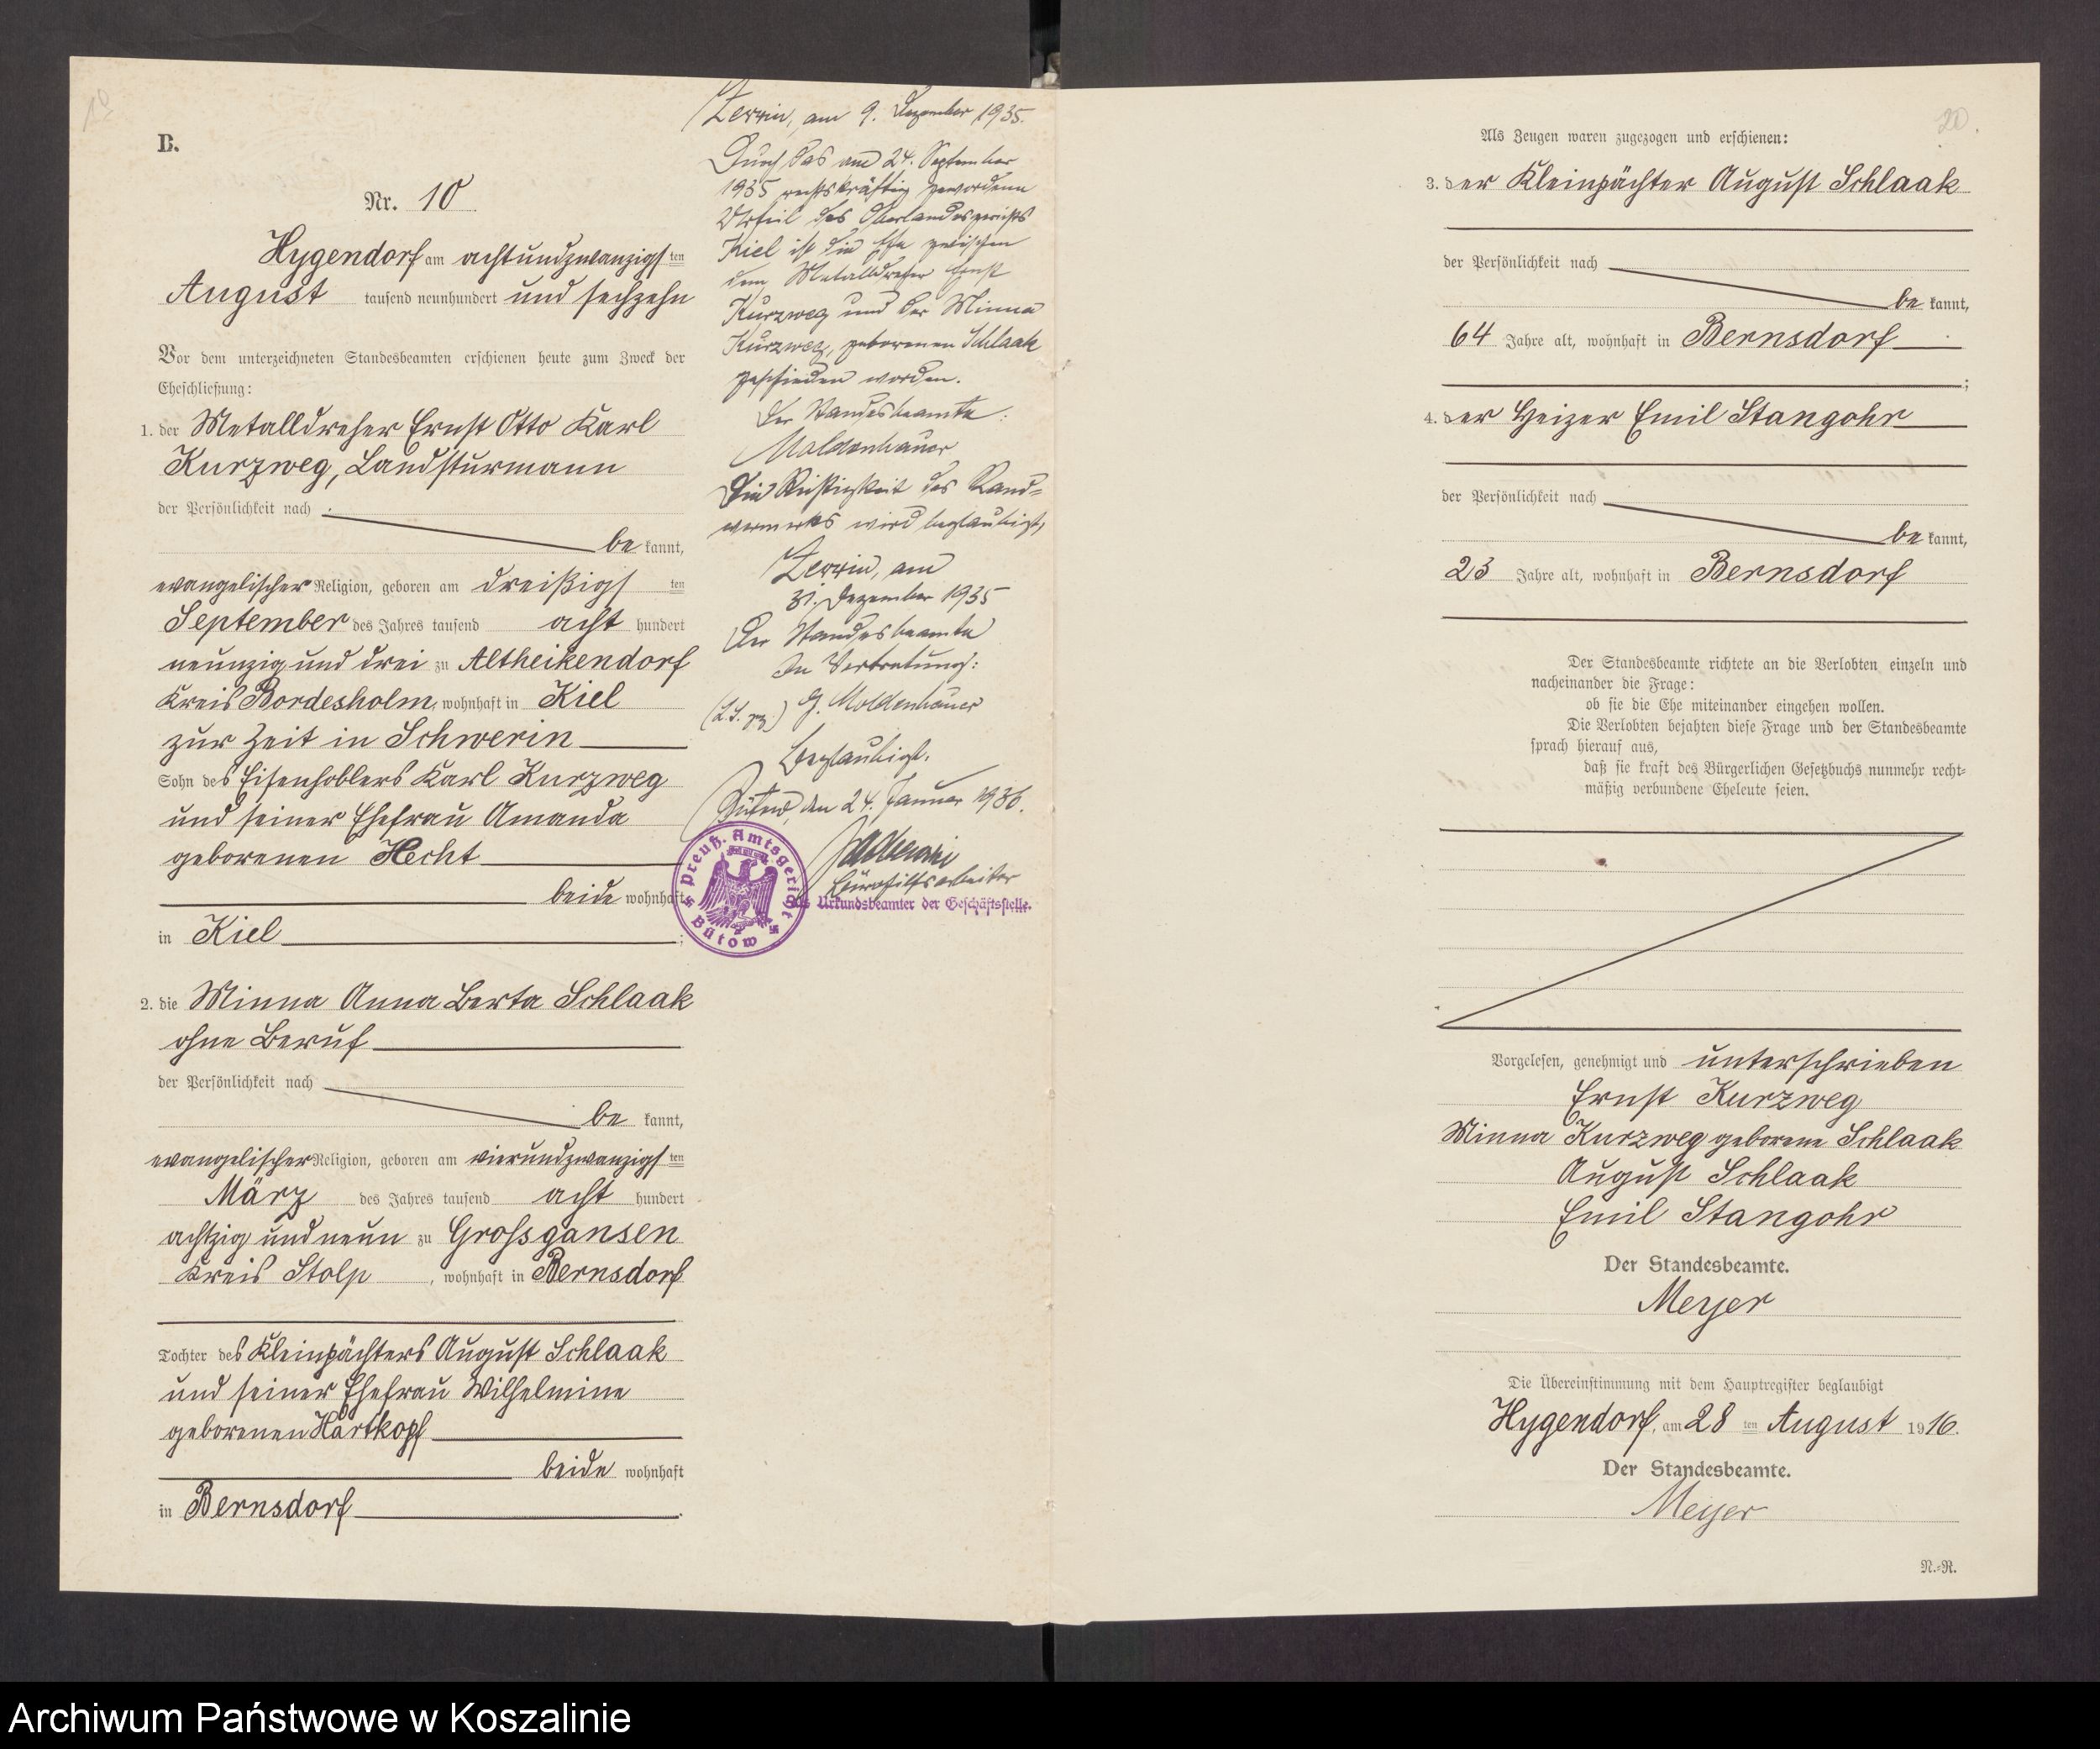 B.
Nr. 10
Hygendorf am achtundzwanzigsten
August tausend neunhundert und sechzehn
Vor dem unterzeichneten Standesbeamten erschienen heute zum Zweck der
Eheschließung:
1. der Metalldreher Ernst Otto Karl
Kurzweg, Landsturmann
der Persönlichkeit nach
be kannt,
evangelischer Religion, geboren am dreißigsten
September des Jahres tausend acht hundert
neunzig und drei zu Altheikendorf
Kreis Bordesholm, wohnhaft in Kiel
zur Zeit in Schwerin
Sohn des Eisenhoblers Karl Kurzweg
und seiner Ehefrau Amanda
geborenen Hecht
beide wohnhaft
in Kiel;
2. die Minna Anna Berta Schlaak
ohne Beruf
der Persönlichkeit nach
be kannt,
evangelischer Religion, geboren am vierundzwanzigsten
März des Jahres tausend acht hundert
achtzig und neun zu Grossgansen
Kreis Stolp, wohnhaft in Bernsdorf
Tochter des Kleinpächters August Schlaak
und seiner Ehefrau Wilhelmine
geborenen Hartkopf
beide wohnhaft
in Bernsdorf.
Zerrin, am 9. Dezember 1935.
Durch das am 24. September
1935 rechtskräftig gewordene
Urteil des Oberlandesgerichts
Kiel ist die Ehe zwischen
dem Metalldreher Ernst
Kurzweg und der Minna
Kurzweg, geborenen Schlaak
geschieden worden.
Der Standesbeamte:
Moldenhauer
Die Richtigkeit des Rand-
vermerks wird beglaubigt,
Zerrin, am
31. Dezember 1935
Der Standesbeamte
In Vertretung:
(L.S. gz.) G. Moldenhauer
Beglaubigt.
Bütow, den 24. Januar 1936.
Bürohilfsarbeiter
als Urkundsbeamter der Geschäftsstelle.
Preuß. Amtsgericht
Bütow
20.
Als Zeugen waren zugezogen und erschienen:
3. der Kleinpächter August Schlaak
der Persönlichkeit nach
be kannt,
64 Jahre alt, wohnhaft in Bernsdorf
;
4. der Heizer Emil Stangohr
der Persönlichkeit nach
be kannt,
23 Jahre alt, wohnhaft in Bernsdorf
Der Standesbeamte richtete an die Verlobten einzeln und
nacheinander die Frage:
ob sie die Ehe miteinander eingehen wollen.
Die Verlobten bejahten diese Frage und der Standesbeamte
sprach hierauf aus,
daß sie kraft des Bürgerlichen Gesetzbuchs nunmehr recht-
mäßig verbundene Eheleute seien.
Vorgelesen, genehmigt und unterschrieben
Ernst Kurzweg
Minna Kurzweg geborene Schlaak
August Schlaak
Emil Stangohr
Der Standesbeamte.
Meyer
Die Übereinstimmung mit dem Hauptregister beglaubigt
Hygendorf, am 28ten August 1916.
Der Standesbeamte.
Meyer
N.-R.
Archiwum Państwowe w Koszalinie